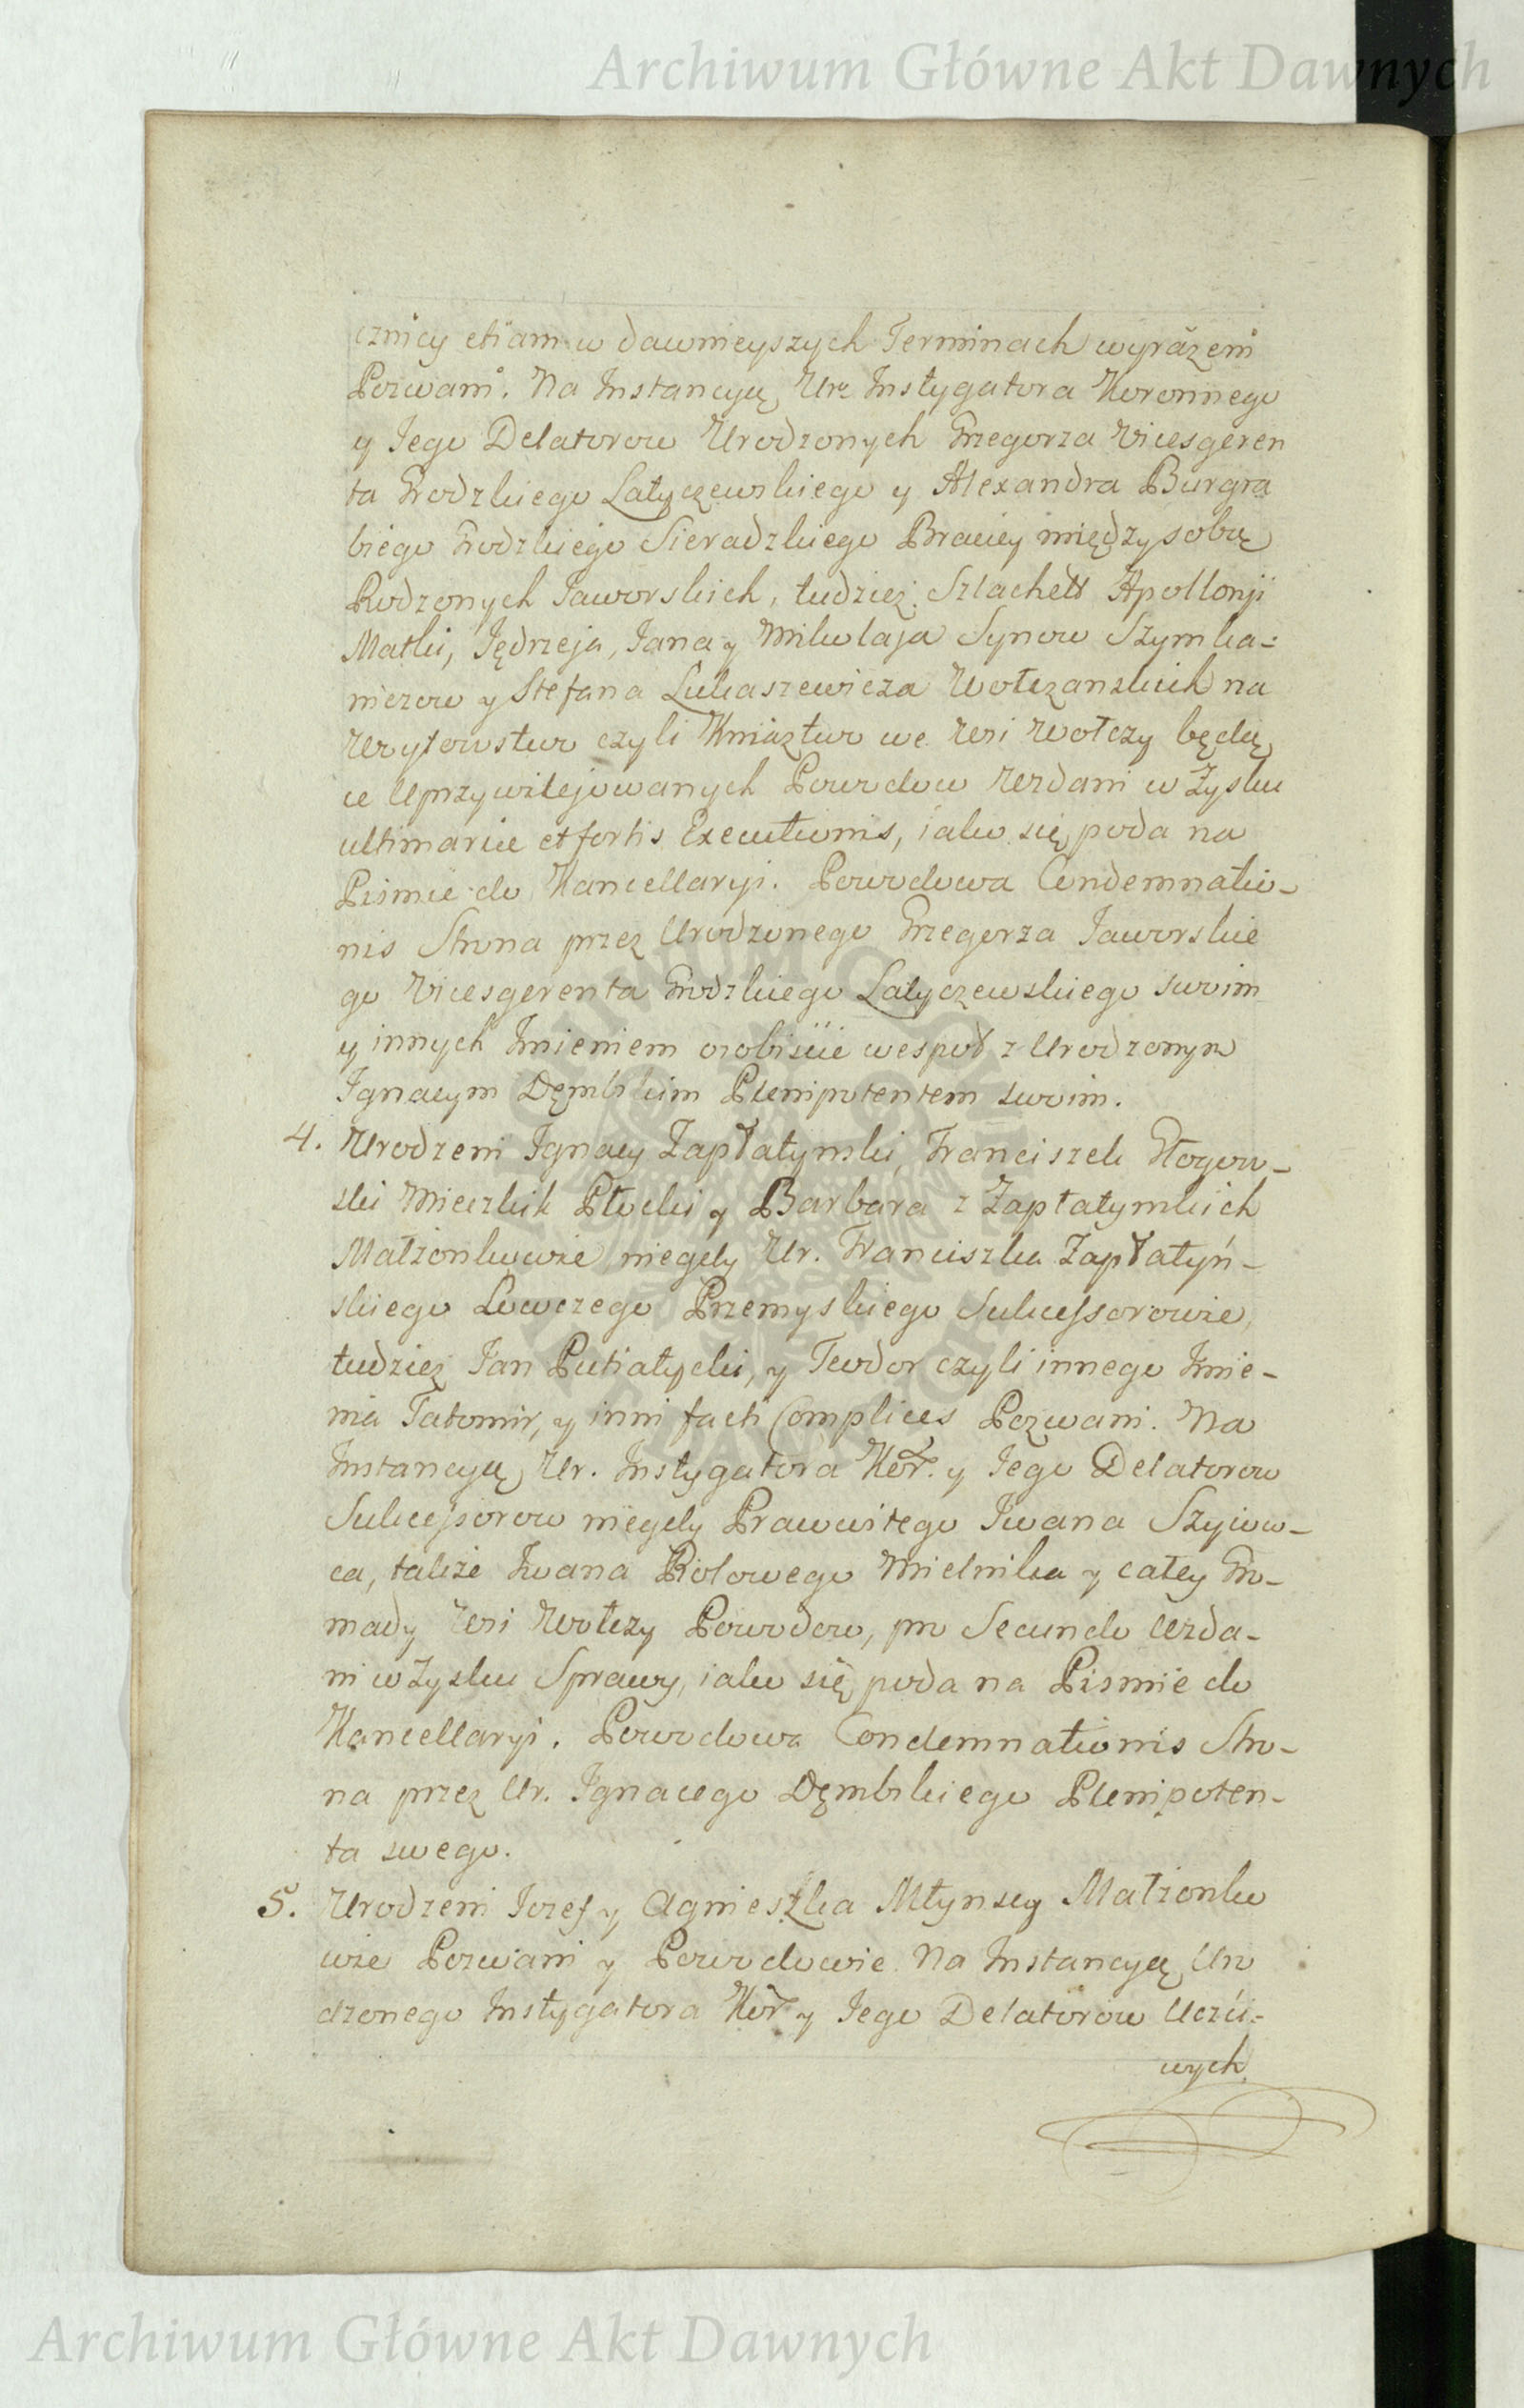 Archiwum Główne Akt Dawnych
cznicy etiam w dawnieyszych Terminach wyrażeni
Pozwani. Na Instancyą Urz Instygatora Koronnego
y Jego Delatorow Urodzonych Grzegorza Vicesgeren
ta Grodzkiego Latyczewskiego y Alexandra Burgra
biego Grodzkiego Sieradzkiego Braciey między sobą
Rodzonych Jaworskich, tudziez Szlachett Apollonji
Matki, Jędrzeja, Jana y Mikołaja Synow Szymka-
niezow y Stefana Lukaszewicza Wołczanskich na
Woytowstwo czyli Kniaztwo we Wsi Wołczy będą
ce Uprzywilejowanych Powodow Wzdani w Zysku
ultimariae et fortis Executionis, iako się poda na
Pismie do Kancellaryi. Powodowa Condemnatio-
nis Strona przez Urodzonego Grzegorza Jaworskie
go Vicesgerenta Grodzkiego Latyczewskiego swoim
y innych Imieniem osobiscie wespoł z Urodzonym
Ignacym Dęmbskim Plenipotentem swoim.
4. Urodzeni Ignacy Zapłatynski, Franciszek Głogow-
ski Miecznik Płocki y Barbara z Zapłatynskich
Małżonkowie niegdy Ur. Franciszka Zapłatyń-
skiego Łowczego Przemyskiego Sukcessorowie,
tudziez Jan Putiatycki, y Teodor czyli innego Imie-
nia Tatomir, y inni facti Complices Pozwani. Na
Instancyą Ur. Instygatora Kor. y Jego Delatorow
Sukcessorow niegdy Prawowitego Iwana Szyiow-
ca, także Iwana Rolowego Mielnika y całey Gro-
mady Wsi Wołczy Powodow, pro Secundo Wzda-
ni w Zysku Sprawy, iako się poda na Pismie do
Kancellaryi. Powodowa Condemnationis Stro-
na przez Ur. Ignacego Dęmbskiego Plenipoten-
ta swego.
5. Urodzeni Jozef y Agnieszka Młynscy Małżonko
wie Pozwani y Powodowie. Na Instancyą Uro
dzonego Instygatora Kor y Jego Delatorow Uczci-
wych
Archiwum Główne Akt Dawnych